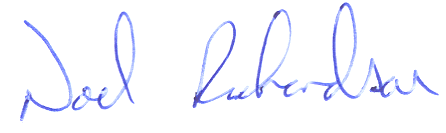 Noel Richardson